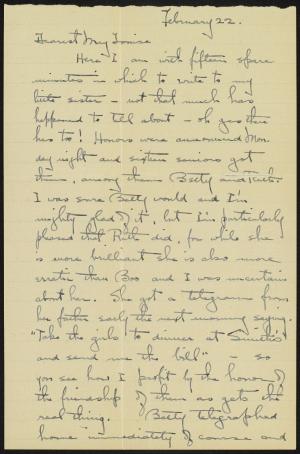 February 22.
Dearest My Louise
Here I am with fifteen spare
minutes in which to write to my
little sister – not that much has
happened to tell about – oh yes there
has too! Honors were announced Mon
day night and sixteen seniors got
them, among them Betty and Ruth.
I was sure Betty would and I'm
mighty glad of it, but I'm particularly
pleased that Ruth did, for while she
is more brilliant she is also more
erratic than Boo and I was uncertain
about her. She got a telegram from
her father early the next morning saying,
"Take the girls to dinner at
and send me the bill" – so
you see how I profit by the honor of
the friendship of them as gets the
real thing. Betty telegraphed
home immediately of course and